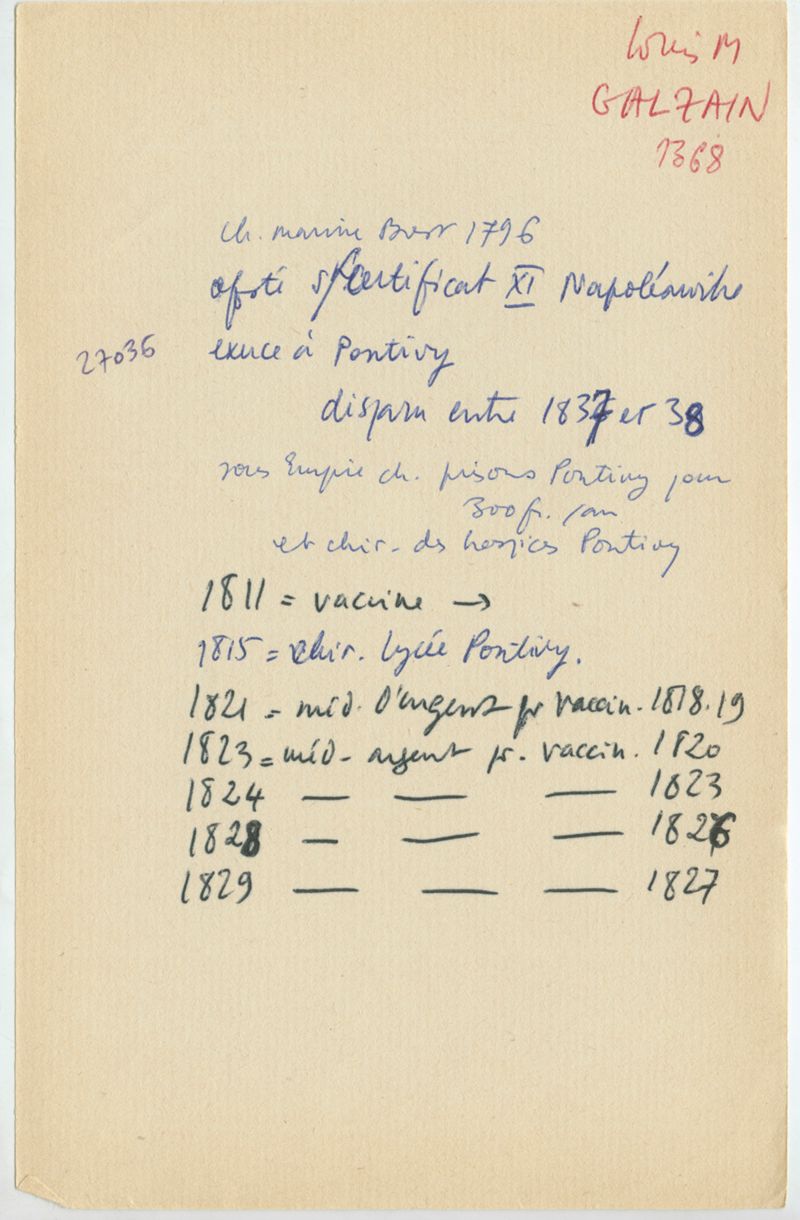 Louis M
GALZAIN
1368
ch. marine Brest 1796
of. sté s/certificat XI Napoléonville
27036 exerce à Pontivy
disparu entre 1837 et 38
sous Empire ch. prisons Pontivy pour
300 fr. /an
et chir. des hospices Pontivy
1811 = vaccine →
1815 = chir. lycée Pontivy.
1821 = méd. d'argent pr vaccin. 1818.19
1823 = méd. argent pr. vaccin. 1820
1824 — — — 1823
1828 — — — 1826
1829 — — — 1827